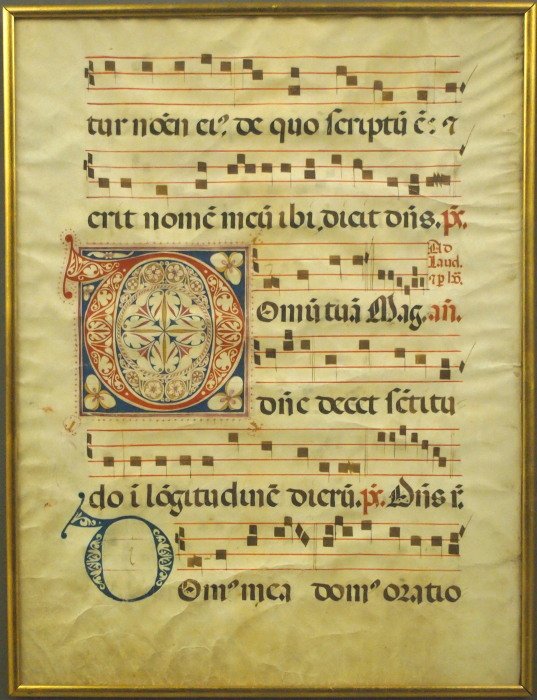 tur nōēn ei⁹ de quo scriptū ē: ⁊
erit nomē meū ibi, dicit dn̄s. p̄s.
Ad
Laud.
Domū tuā Mag. an̄.
dn̄e decet sc̄titu
do ī lōgitudinē dierū. p̄s. Dn̄s r̄.
Dom⁹ mea dom⁹ oratio